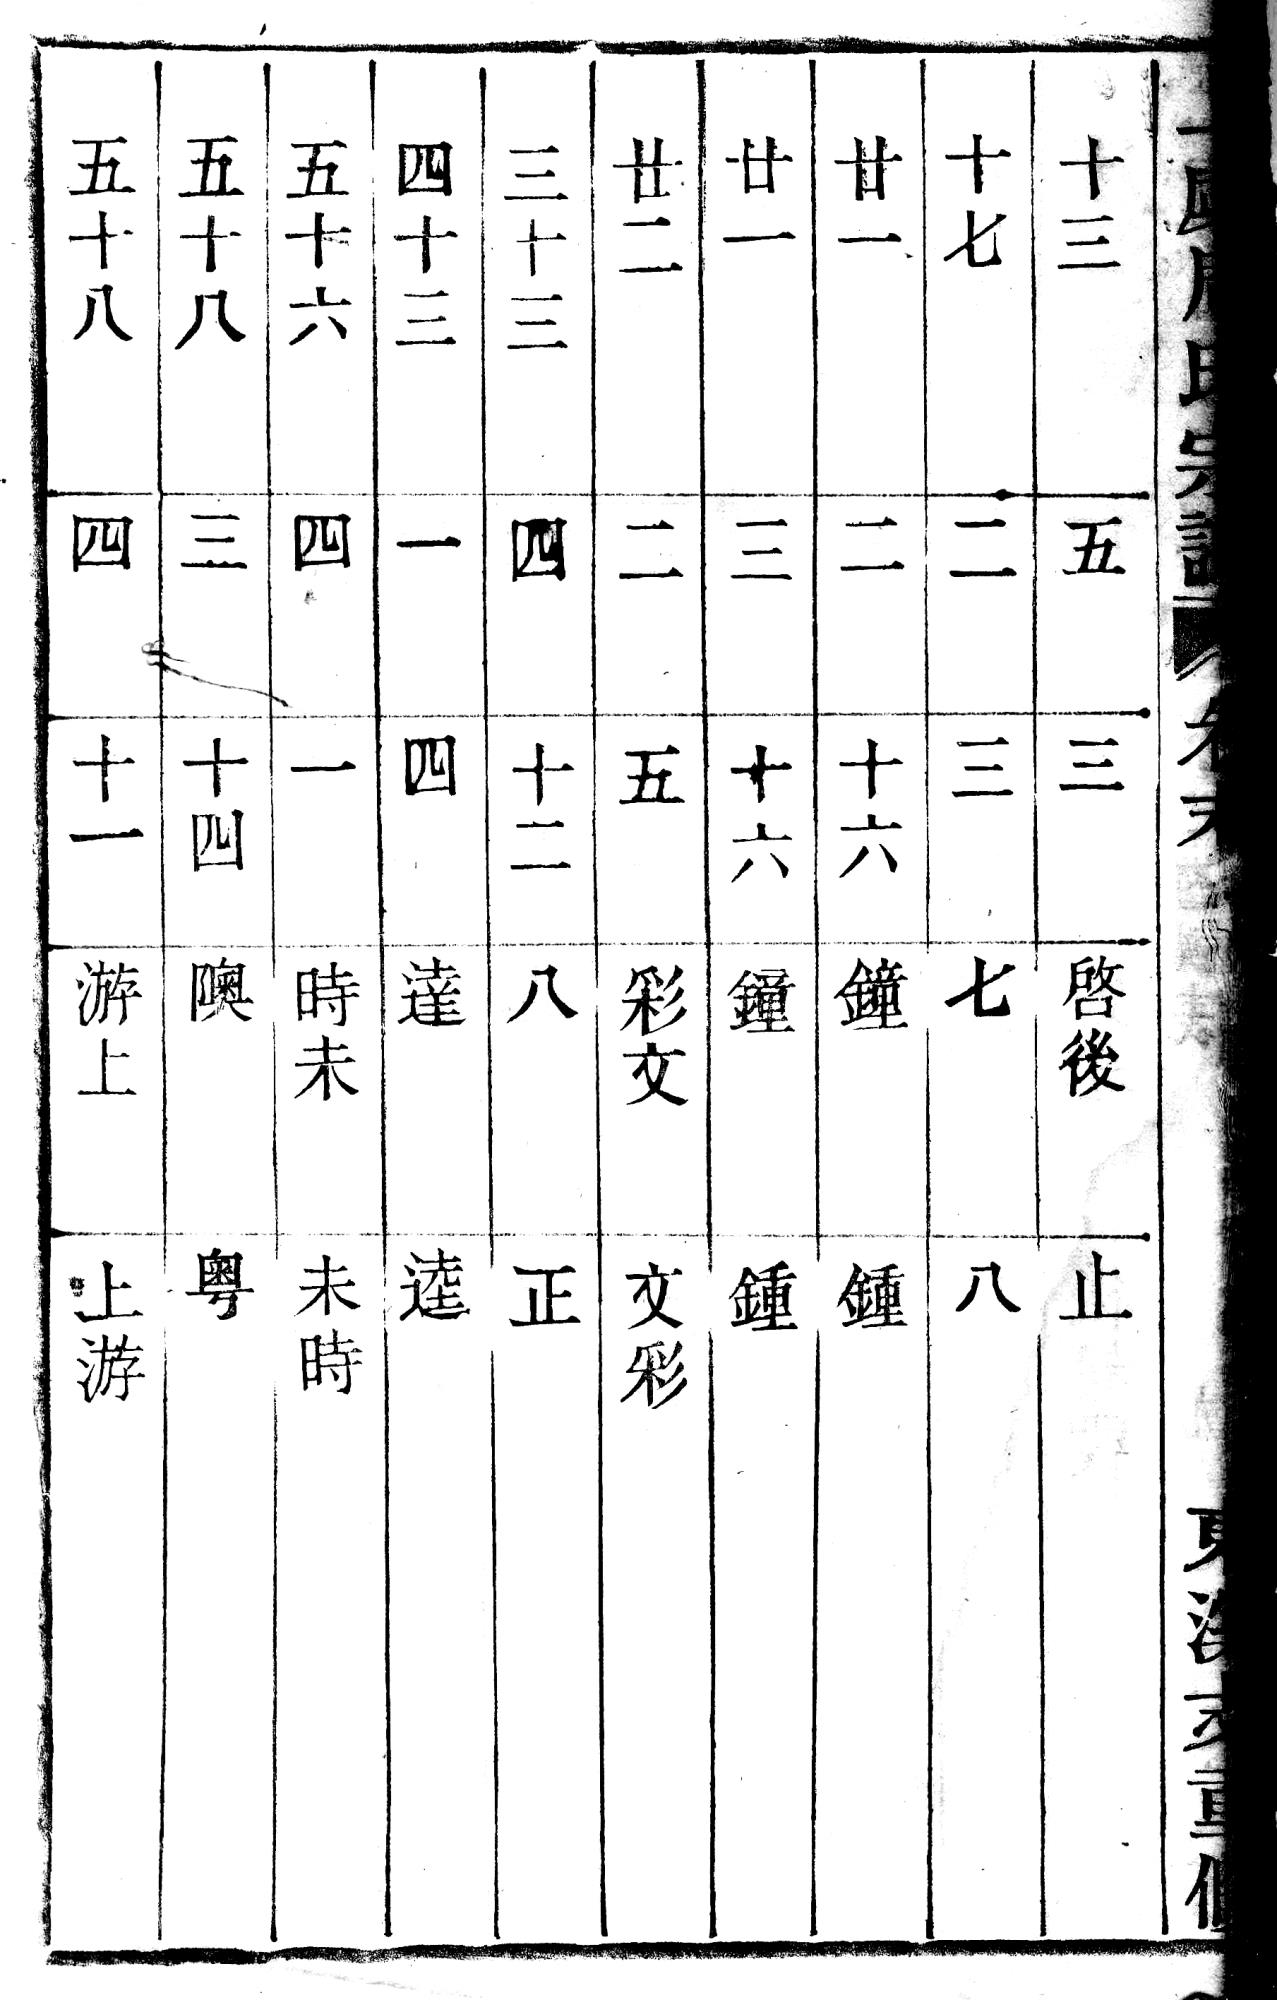 氏宗譜 卷末 東海支重修
十三 五 三 啓後 止
十七 二 三 七 八
廿一 二 十六 鐘 鍾
廿一 三 十六 鐘 鍾
廿二 二 五 彩文 文彩
三十三 四 十二 八 正
四十三 一 四 達 逵
五十六 四 一 時未 未時
五十八 三 十四 隩 粵
五十八 四 十一 游上 上游